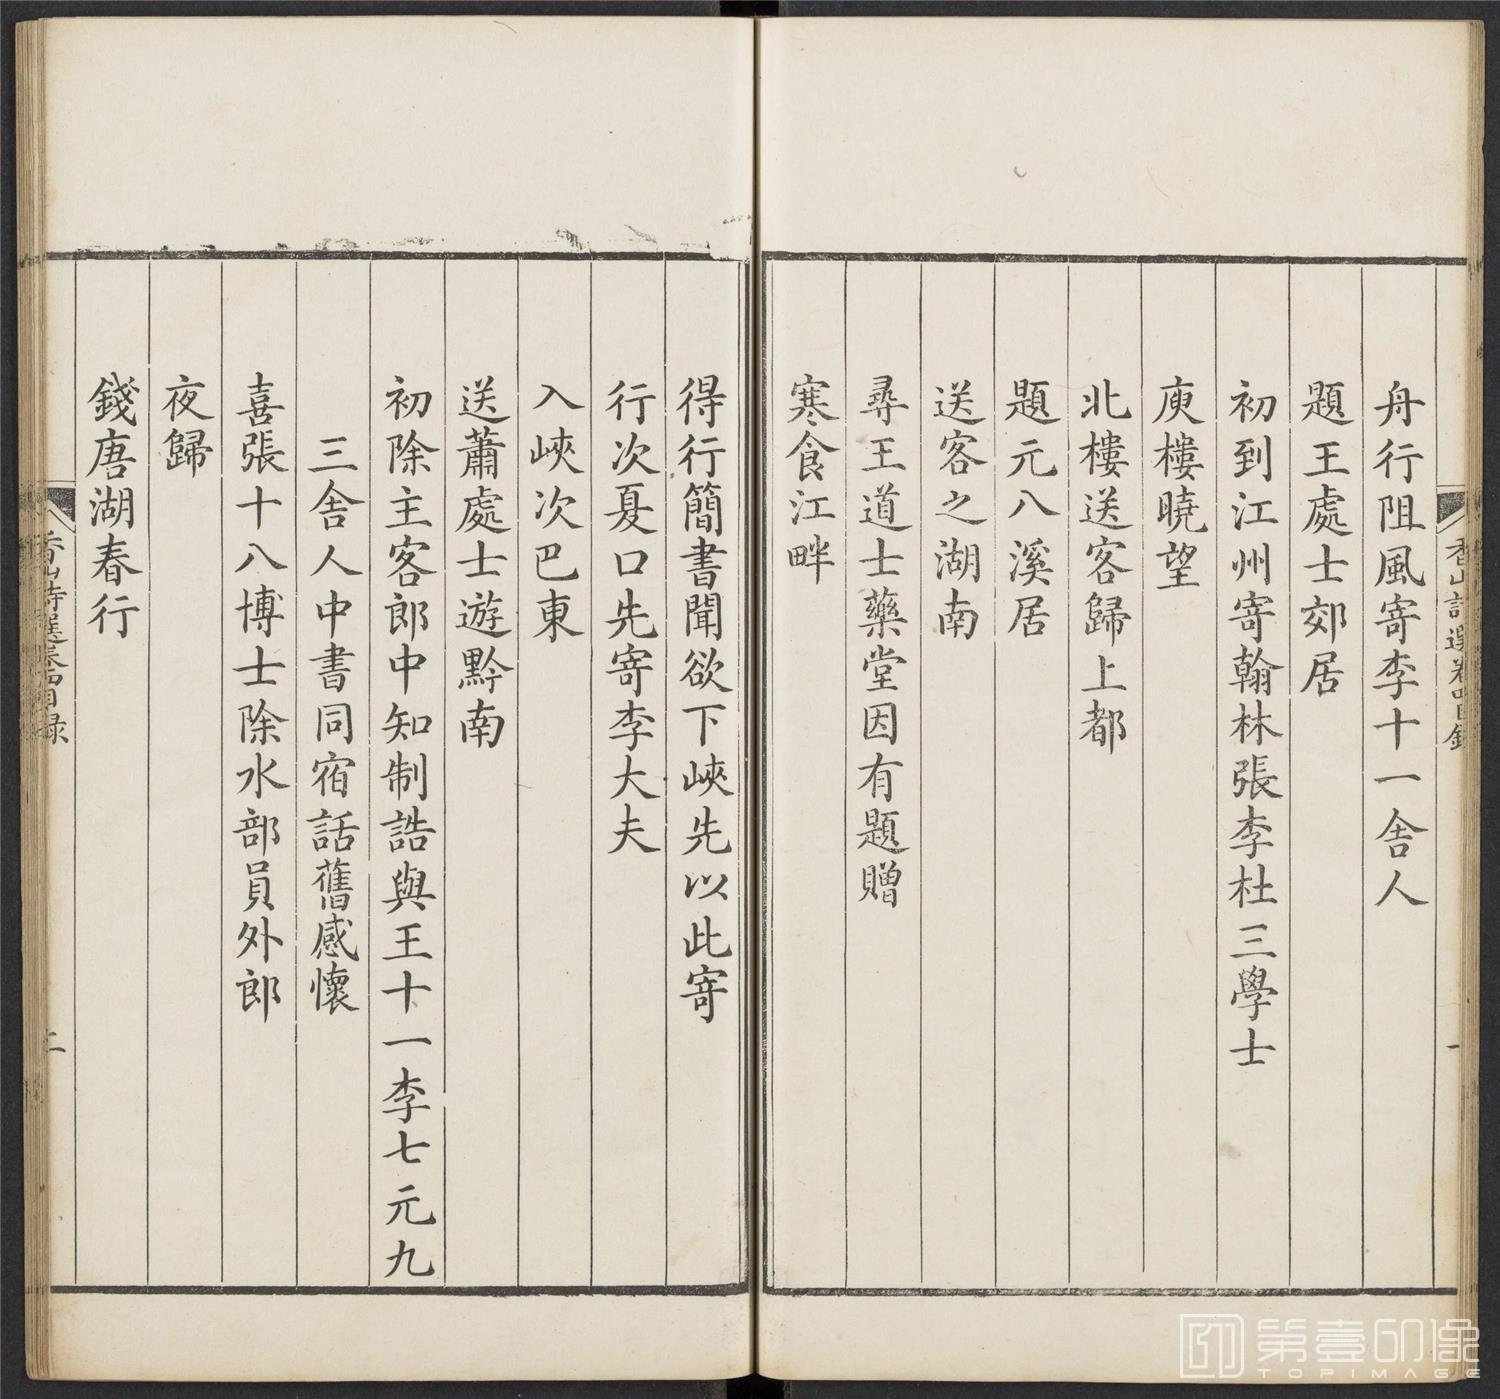 舟行阻風寄李十一舍人
題王處士郊居
初到江州寄翰林張李杜三學士
庾樓曉望
北樓送客歸上都
題元八溪居
送客之湖南
尋王道士藥堂因有題贈
寒食江畔
得行簡書聞欲下峽先以此寄
行次夏口先寄李大夫
入峽次巴東
送蕭處士遊黔南
初除主客郎中知制誥與王十一李七元九
三舍人中書同宿話舊感懷
喜張十八博士除水部員外郎
夜歸
錢唐湖春行
香山詩選卷四目錄
一
香山詩選卷四目錄
二
第壹印像
TOPIMAGE